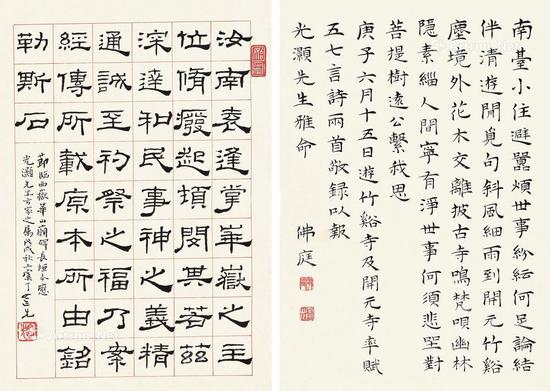 南臺小住避囂煩世事紛紜何足論結
伴清遊閒覓句斜風細雨到開元竹谿
塵境外花木交離披古寺鳴梵唄幽林
隱素緇人間寧有淨世事何須悲坐對
菩提樹遠公繫我思
庚子六月十五日遊竹谿寺及開元寺率賦
五七言詩兩首敬錄以報
光灝先生雅命
佛庭
汝南袁逢掌華嶽之主
位脩癈起頓閔其若茲
深達和民事神之義精
通誠至礿祭之福乃案
經傳所載原本所由銘
勒斯石
節臨西嶽華山廟碑長垣本應
光灝先生方家之屬戊戌秋丁念先